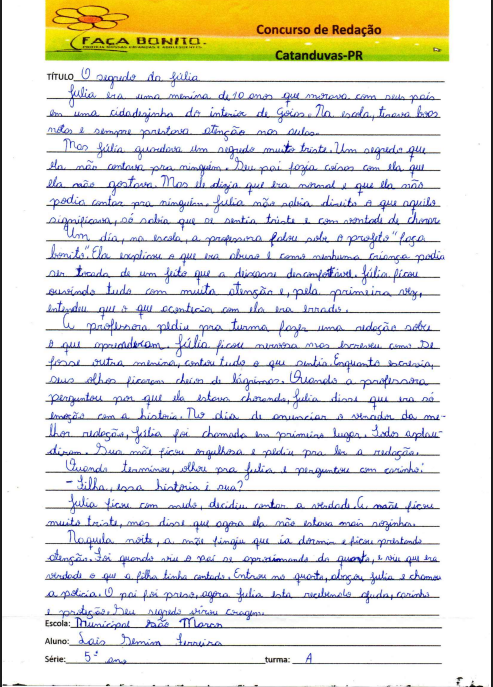 FAÇA BONITO.
PROTEJA NOSSAS CRIANÇAS E ADOLESCENTES
Concurso de Redação
Catanduvas-PR
TÍTULO O segredo da Júlia
Júlia era uma menina de 10 anos que morava com seus pais
em uma cidadezinha do interior de Goiás. Na escola, tirava boas
notas e sempre prestava atenção nas aulas.
Mas Júlia guardava um segredo muito triste. Um segredo que
ela não contava pra ninguém. Seu pai fazia coisas com ela que
ela não gostava. Mas ele dizia que era normal e que ela não
podia contar pra ninguém. Julia não sabia direito o que aquilo
significava, só sabia que se sentia triste e com vontade de chorar
Um dia, na escola, a professora falou sobre o projeto "faça
bonito". Ela explicou o que era abuso e como nenhuma criança podia
ser tocada de um jeito que a deixasse desconfortável. Júlia ficou
ouvindo tudo com muita atenção e, pela primeira vez,
entendeu que o que acontecia com ela era errado.
A professora pediu pra turma fazer uma redação sobre
o que aprenderam. Júlia ficou nervosa mas escreveu como se
fosse outra menina, contou tudo o que sentia. Enquanto escrevia,
seus olhos ficaram cheios de lágrimas. Quando a professora
perguntou por que ela estava chorando, Julia disse que era só
emoção com a historia. No dia de anunciar o
da me-
lhor redação, Júlia foi chamada em primeiro lugar. Todos aplau-
diram. Sua mãe ficou orgulhosa e pediu pra ler a redação.
Quando terminou, olhou pra Julia e perguntou com carinho:
- Filha, essa historia é sua?
Julia ficou com medo, decidiu contar a verdade. A mãe ficou
muito triste, mas disse que agora ela não estava mais sozinha.
Naquela noite, a mãe fingiu que ia dormir e ficou prestando
atenção. Foi quando viu o pai se aproximando do quarto, e viu que era
verdade o que a filha tinha contado. Entrou no quarto, abraçou Julia e chamou
a polícia. O pai foi preso, agora Julia esta recebendo ajuda, carinho
e proteção. Seu segredo virou coragem.
Escola: Municipal São Marcos
Aluno: Laís Ferreira
Série: 5º ano turma: A